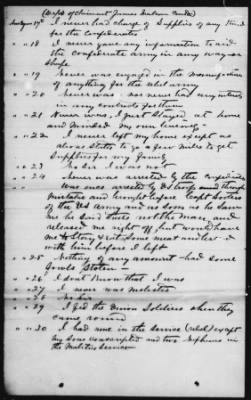 (Copy of Claimant James Andrews [...]
Ans Ques 17th I never had charge of Supplies of any kind
for the Confederates
" " 18 I never gave any information to aid
the confederate army in any way or
shape
" " 19 never was engaged in the Manufacture
of anything for the rebel army
" " 20 never was nor never had any interest
in any contracts for them
" " 21 Never was, I just Stayed at home
and Minded my own business
" " 22 I never left my home except as
above States to go a few miles to get
Supplies for my family
" " 23 No Sir I was not
" " 24 never was arrested by the Confederates
Was once arrested by US troops
Mistake and brought before Capt
of the US Army and as soon as he Saw
me he Said thats not the Man and
released me right off but would have
me to Stay & eat Some meat and
with him before I left
" " 25 Nothing of any amount had Some
fowls Stolen
" " 26 I dont Know that I was
" " 27 I never was molested
" " 28 No Sir
" " 29 I fed the Union Soldiers when they
came around
" " 30 I had none in the Service (rebel) except
my Sons conscripted and two Nephews in
the Malitia Service